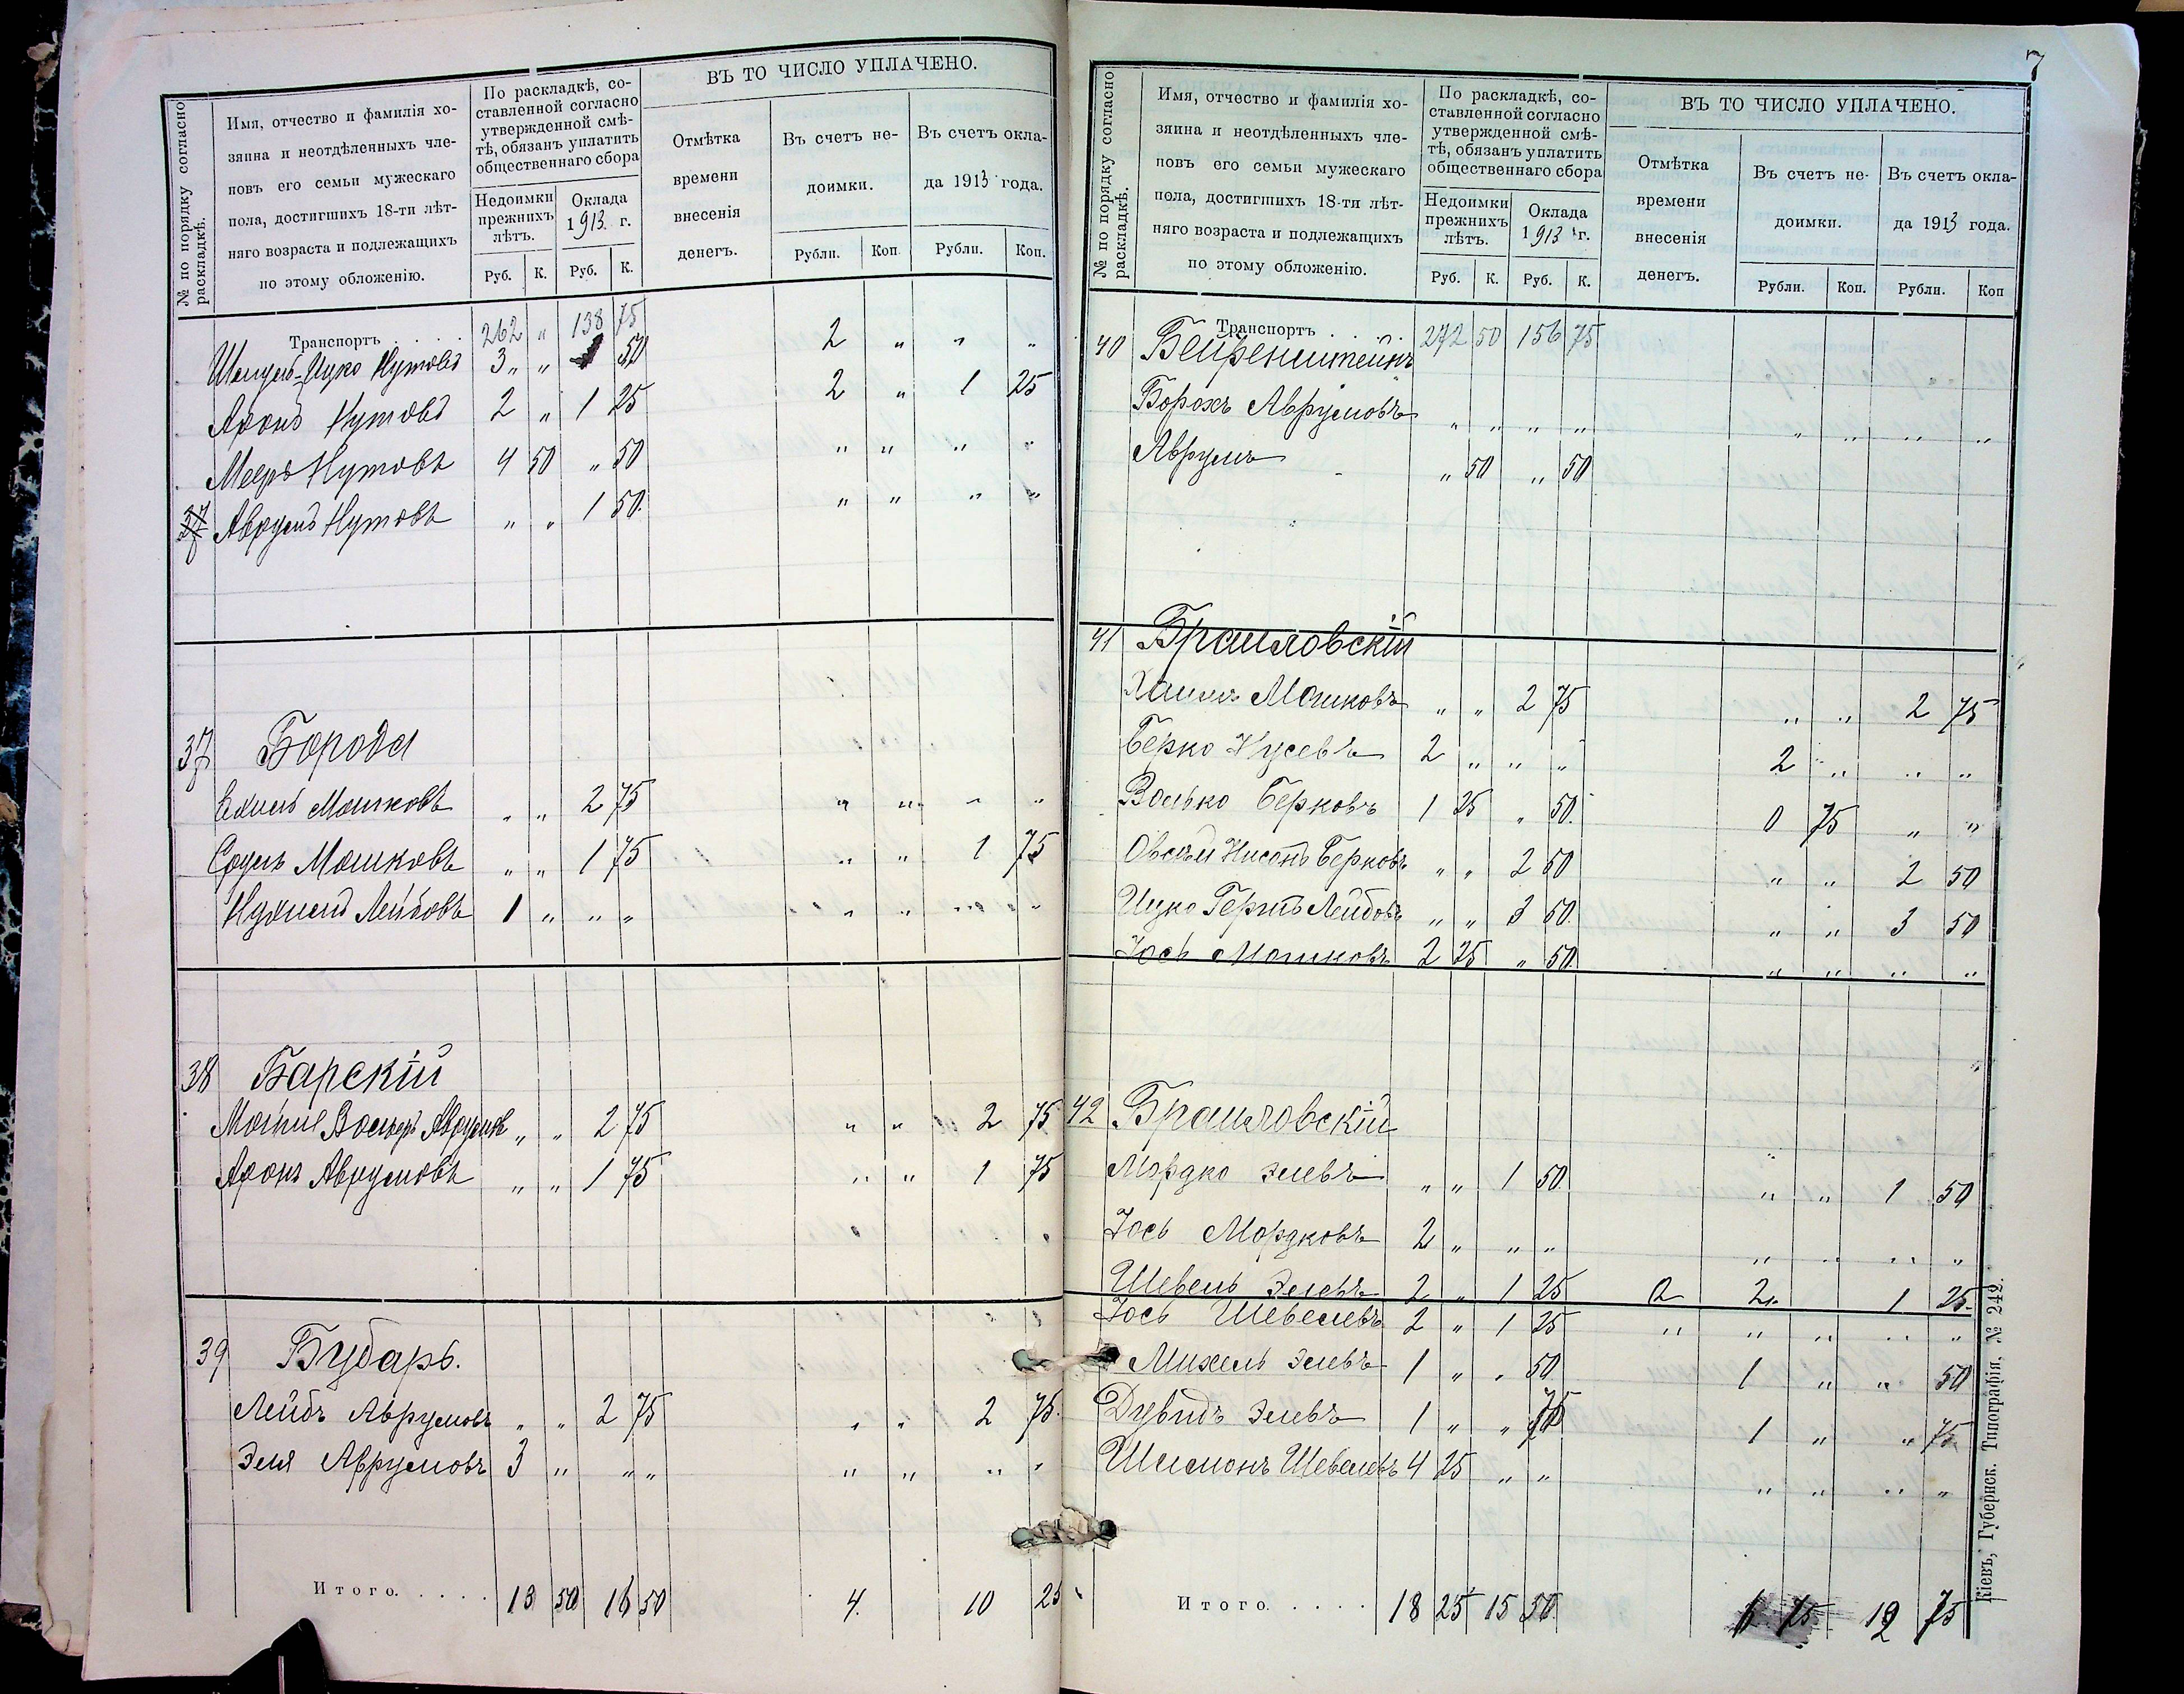 № по порядку согласно раскладкѣ.
Имя, отчество и фамилія хозяина и неотдѣленныхъ членовъ его семьи мужескаго пола, достигшихъ 18-ти лѣтняго возраста и подлежащихъ по этому обложенію.
По раскладкѣ, составленной согласно утвержденной смѣтѣ, обязанъ уплатить общественнаго сбора
Недоимки прежнихъ лѣтъ.
Оклада 1913 г.
Руб. К. Руб. К.
ВЪ ТО ЧИСЛО УПЛАЧЕНО.
Отмѣтка времени внесенія денегъ.
Въ счетъ недоимки.
Въ счетъ оклада 1913 года.
Рубли. Коп. Рубли. Коп.
Транспортъ 262 „ 138 75
Ицко Нутовъ 3 „ „ 50 2 „ „ „
Аронъ Нутовъ 2 „ 1 25 2 „ 1 25
Мееръ Нутовъ 4 50 „ 50 „ „ „ „
Аврумъ Нутовъ „ „ 1 50 „ „ „ „
37 Борода
Ехиль Мошковъ „ „ 2 75 „ „ „ „
Сруль Мошковъ „ „ 1 75 „ „ 1 75
Нухимъ Лейбовъ 1 „ „ „ „ „ „ „
38 Барскій
Мотие Вольфъ Аврумов „ „ 2 75 „ „ 2 75
Аронъ Аврумовъ „ „ 1 75 „ „ 1 75
39 Бубарь.
Лейбъ Аврумовъ „ „ 2 75 „ „ 2 75
Эля Аврумовъ 3 „ „ „ „ „ „ „
Итого. 13 50 16 50 4. 10 25
7
№ по порядку согласно раскладкѣ.
Имя, отчество и фамилія хозяина и неотдѣленныхъ членовъ его семьи мужескаго пола, достигшихъ 18-ти лѣтняго возраста и подлежащихъ по этому обложенію.
По раскладкѣ, составленной согласно утвержденной смѣтѣ, обязанъ уплатить общественнаго сбора
Недоимки прежнихъ лѣтъ.
Оклада 1913 г.
Руб. К. Руб. К.
ВЪ ТО ЧИСЛО УПЛАЧЕНО.
Отмѣтка времени внесенія денегъ.
Въ счетъ недоимки.
Въ счетъ оклада 1913 года.
Рубли. Коп. Рубли. Коп
Транспортъ 272 50 156 75
40 Бейренштейнъ
Борохъ Аврумовъ „ „ „ „ „ „ „ „
Аврумъ „ 50 „ 50
41 Браиловскій
Хаимъ Мошковъ „ „ 2 75 „ „ 2 75
Берко Нусевъ 2 „ „ „ 2 „ „ „
Волько Берковъ 1 25 „ 50. 0 75 „ „
Овсей Нисонъ Берковъ „ „ 2 50 „ „ 2 50
Ицко Гершъ Лейбовъ „ „ 3 50. „ „ 3 50
Іось Мошковъ 2 25 „ 50. „ „ „ „
42 Браиловскій
Мордко Элевъ „ „ 1 50 „ „ 1 50
Іось Мордковъ 2 „ „ „ „ „ „ „
Шевель Элевъ 2 „ 1 25 2 2 „ 1 25
Іось Шевелевъ 2 „ 1 25 „ „ „ „ „
Михель Элевъ 1 „ „ 50 1 „ „ 50
Дувидъ Элевъ 1 „ „ 75 1 „ „ 75
Шимонъ Шевелевъ 4 25 „ „ „ „ „ „
Итого. 18 25 15 50. 6 75 12 75
Кіевъ, Губернск. Типографія, № 242.